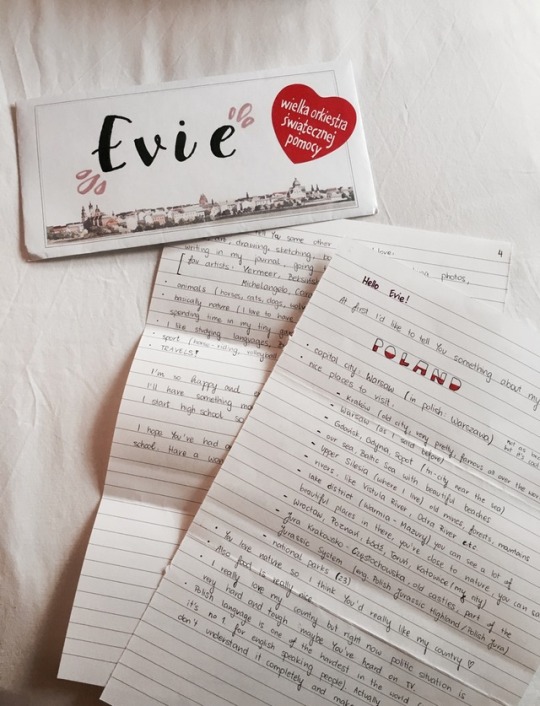 Evie
wielka orkiestra
świątecznej
pomocy
4
You some other
love:
drawing, sketching,
photos,
writing in my journal, going
fav artists: Vermeer, Beksiński
Michelangelo,
• animals (horses, cats, dogs,
• basically nature (I like to have
spending time in my tiny
• I like studying languages,
• sport (horse-riding, volleyball
• TRAVELS!
I'm so happy and
I'll have something
I start high school
I hope You've had
school. Have a
Hello Evie!
At first I'd like to tell You something about my
POLAND
• capital city: Warsaw (in polish: Warszawa)
• nice places to visit:
- Kraków (old city, very pretty, famous all over the
- Warsaw (as I said before)
- Gdańsk, Gdynia, Sopot (tri-city near the sea)
- our sea Baltic Sea with beautiful beaches
- Upper Silesia (where I live) old mines, forests, mountains
- rivers: like Vistula River, Odra River etc
- lake district (Warmia - Mazury) you can see a lot of
beautiful places in there, you're close to nature, you can
- Wrocław, Poznań, Łódź, Toruń, Katowice (my city)
- Jura Krakowsko - Częstochowska, old castles, part of the
Jurassic System (eng. Polish Jurassic Highland/Polish Jura)
- national parks (23)
• You love nature so I think You'd really like my country ♡
• Also food is really nice
• I really love my country but right now politic situation is
very hard and tough, maybe You've heard on TV
• Polish language is one of the hardest in the world
it's no 1 for english speaking people). Actually
don't understand it completely and make